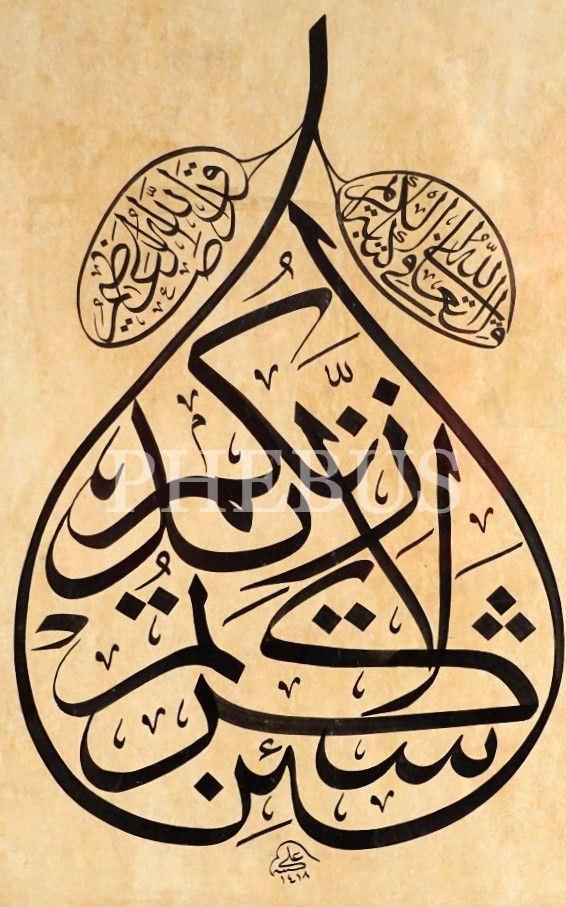 قال الله تعالى في كتابه الكريم
لئن شكرتم لأزيدنكم
صدق الله العظيم
علي
١٤١٨
PHEBUS